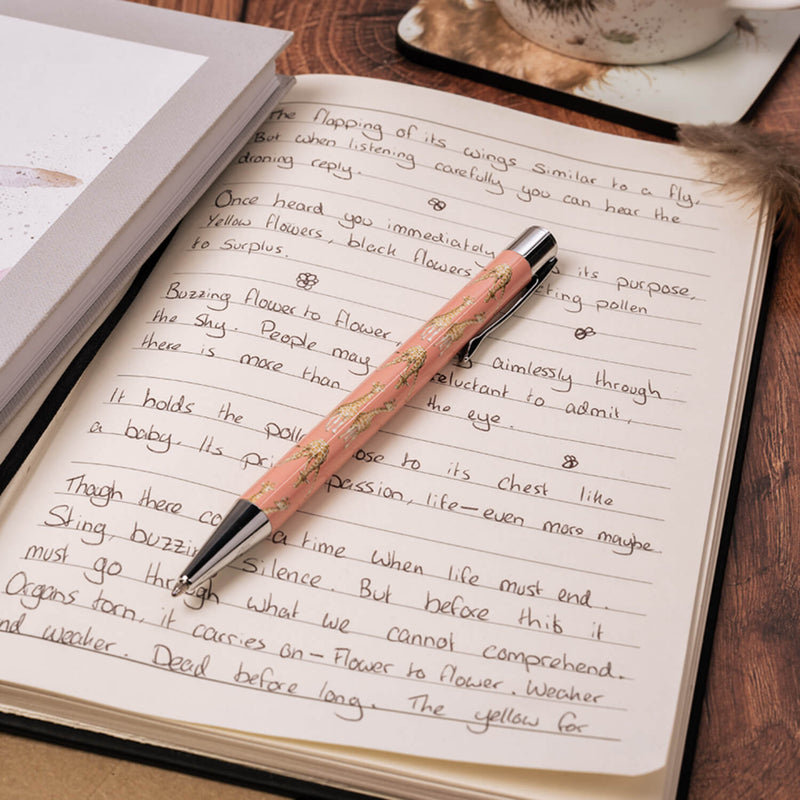 The flapping of its wings similar to a fly,
But when listening carefully you can hear the
droning reply.
Once heard you immediately its purpose,
Yellow flowers, black flowers pollen
to surplus.
Buzzing flower to flower, aimlessly through
the sky. People may reluctant to admit,
there is more than the eye.
It holds the to its chest like
a baby. Its passion, life—even more maybe.
Though there a time when life must end.
Sting, silence. But before this it
must go through what we cannot comprehend.
Organs torn, it carries on – Flower to flower. Weaker
and weaker. Dead before long. The yellow for